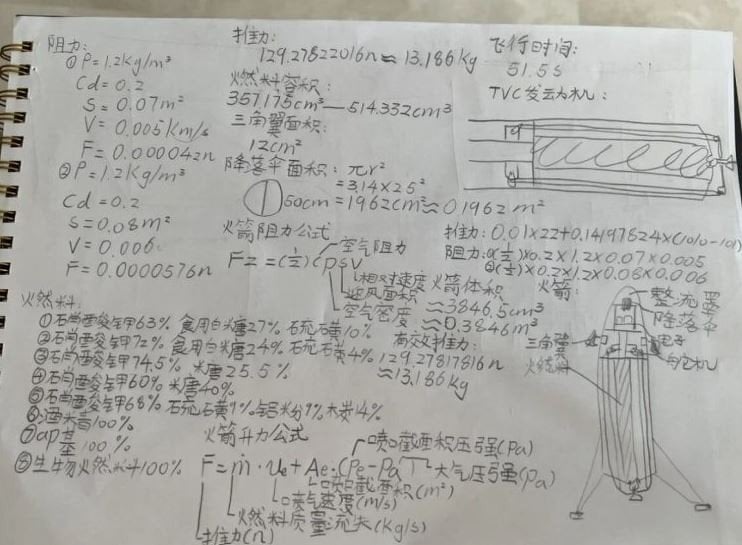 阻力:
①P=1.2kg/m³
Cd=0.2
S=0.07m²
V=0.005km/s
F=0.00042n
②P=1.2kg/m³
Cd=0.2
S=0.08m²
V=0.006
F=0.0000576n
推力:
129.27822016n≈13.186kg
燃料容积:
357.175cm³—514.332cm³
三角翼面积:
12cm²
降落伞面积:πr²
=3.14×25²
50cm=1962cm²≈0.1962m²
飞行时间:
51.5s
TVC发动机:
火箭阻力公式
空气阻力
Fz=(½)cpsv
相对速度
迎风面积
空气密度
推力:0.01×22+0.14197824×(1010-101)
阻力:①(½)×0.2×1.2×0.07×0.005
②(½)×0.2×1.2×0.08×0.006
火箭体积
≈3846.5cm³
≈0.3846m³
有效推力:
129.27817816n
≈13.186kg
火箭:
整流罩
降落伞
电子
三角翼
燃料
燃料:
①石肖酸钾63% 食用白糖27% 石硫磺10%
②石肖酸钾72% 食用白糖24% 石硫磺4%
③石肖酸钾74.5% 糖25.5%
④石肖酸钾60% 糖40%
⑤石肖酸钾68% 石硫磺9% 铝粉9% 木炭14%
⑥酒精100%
⑦ap基100%
⑧生物燃料100%
火箭升力公式
F=ṁ·Ue+Ae·(Pe-Pa)
喷口截面积压强(Pa)
大气压强(pa)
喷口截面积(m²)
喷气速度(m/s)
燃料质量流失(kg/s)
推力(n)